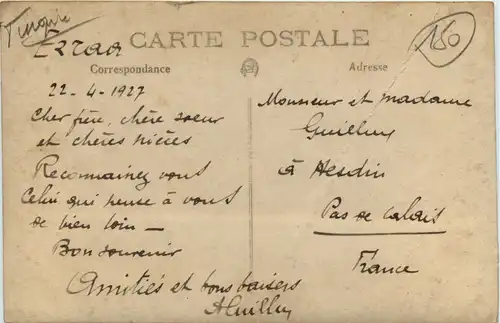 Turquie
Ezraa
CARTE POSTALE
150
Correspondance
Adresse
22-4-1927
Cher frère, chère soeur
et chères nièces
Reconnaissez vous
Celui qui pense à vous
de bien loin —
Bon souvenir
Amitiés et bons baisers
AGuilluy
Monsieur et madame
Guilluy
à Hesdin
Pas de Calais
France